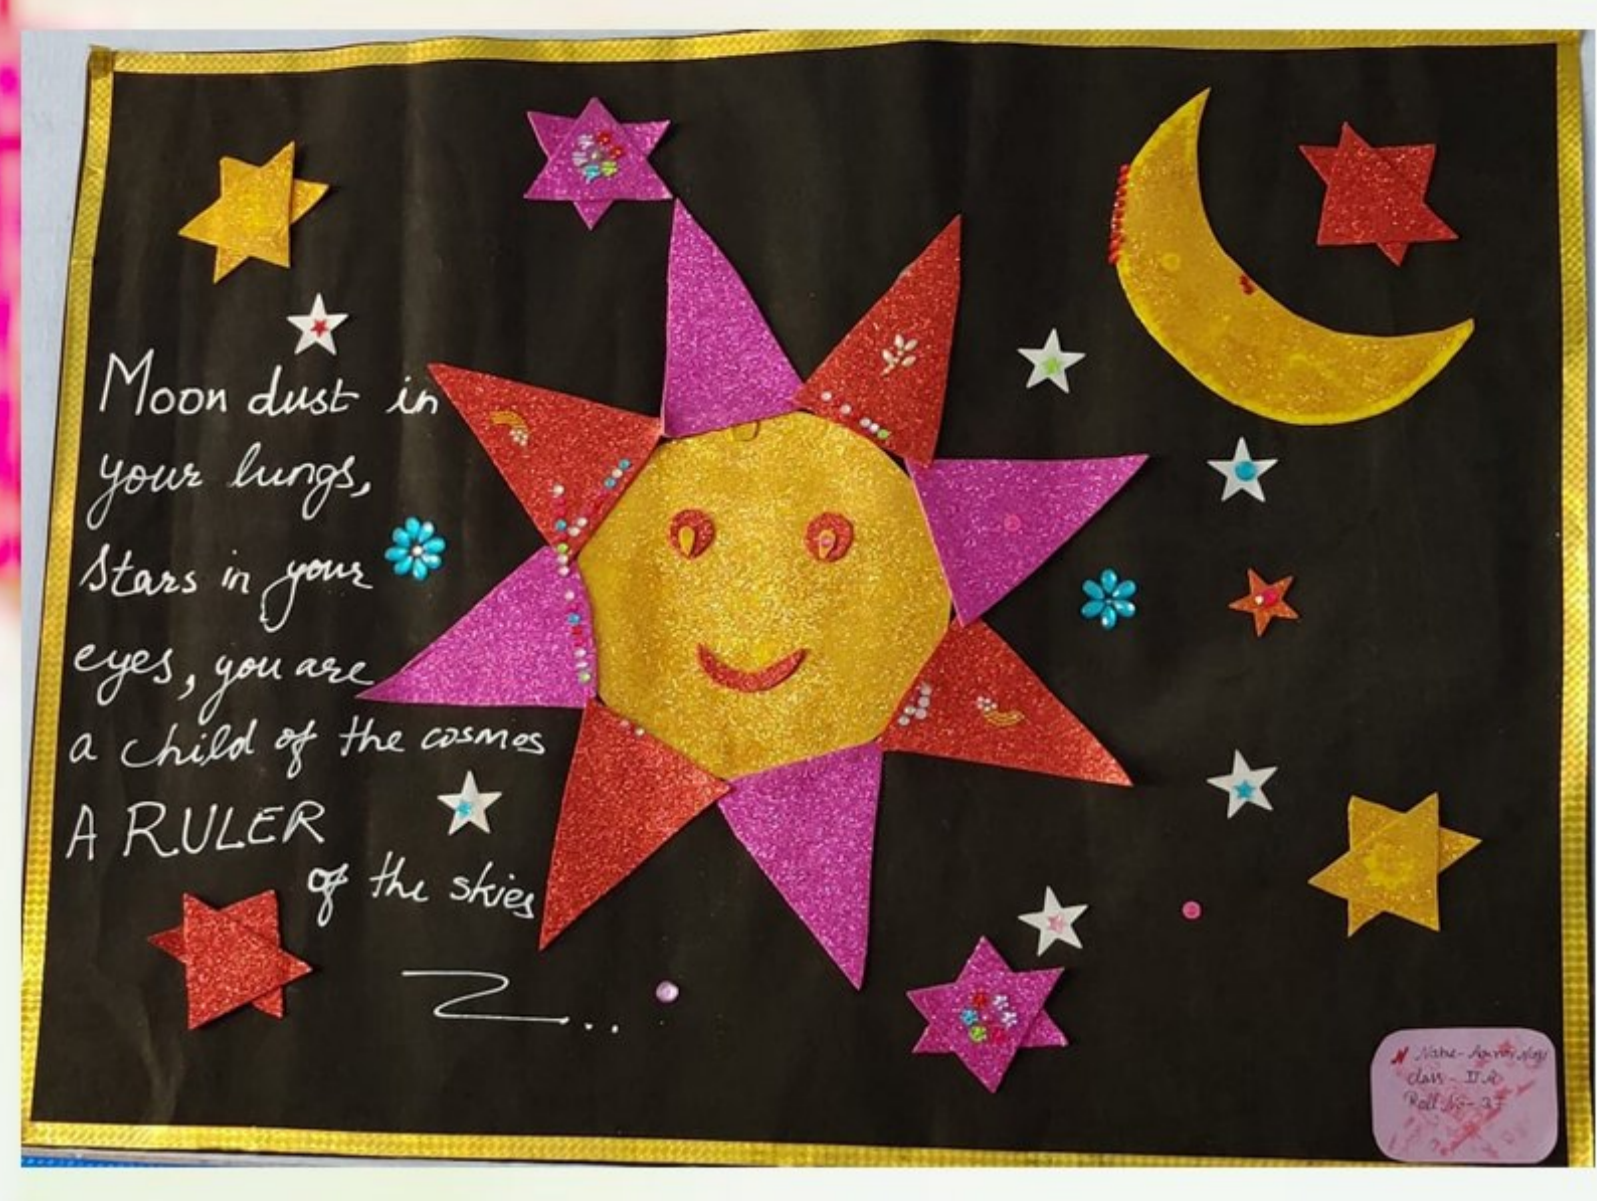 Moon dust in
your lungs,
Stars in your
eyes, you are
a child of the cosmos
A RULER
of the skies
Name-
Class - II
Roll No - 37